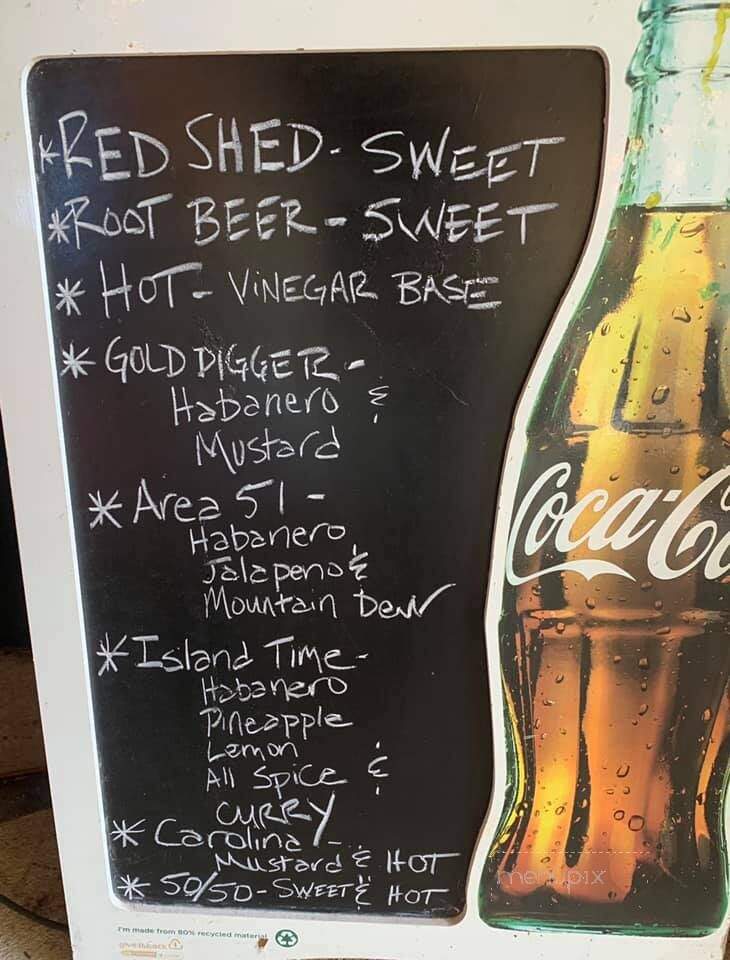 *RED SHED- SWEET
*ROOT BEER- SWEET
* HOT- VINEGAR BASE
* GOLD DIGGER-
Habanero &
Mustard
* Area 51-
Habanero
Jalapeno &
Mountain Dew
* Island Time-
Habanero
Pineapple
Lemon
All Spice &
CURRY
* Carolina-
Mustard & HOT
* 50/50- SWEET & HOT
Coca-Co
menupix
I'm made from 80% recycled material
give it back